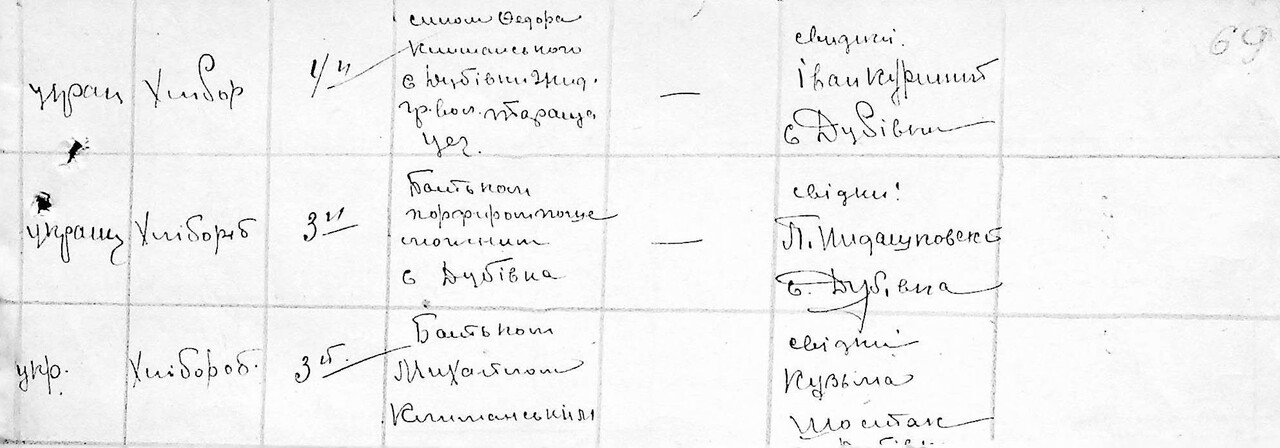 69
украї Хлібор 1/и
сином Федора
Климанського
с Дубівки Жид.
гр. вол. Тараща
Уез.
—
свидки.
Іван Куриний
с Дубівки
українц Хлібороб 3и
Батьком
порфиром
с Дубівка
—
свідки!
с. Дубівка
укр. Хлібороб. 3й.
Батьком
Михайлом
Климанським
свідки
Кузьма
Шостак